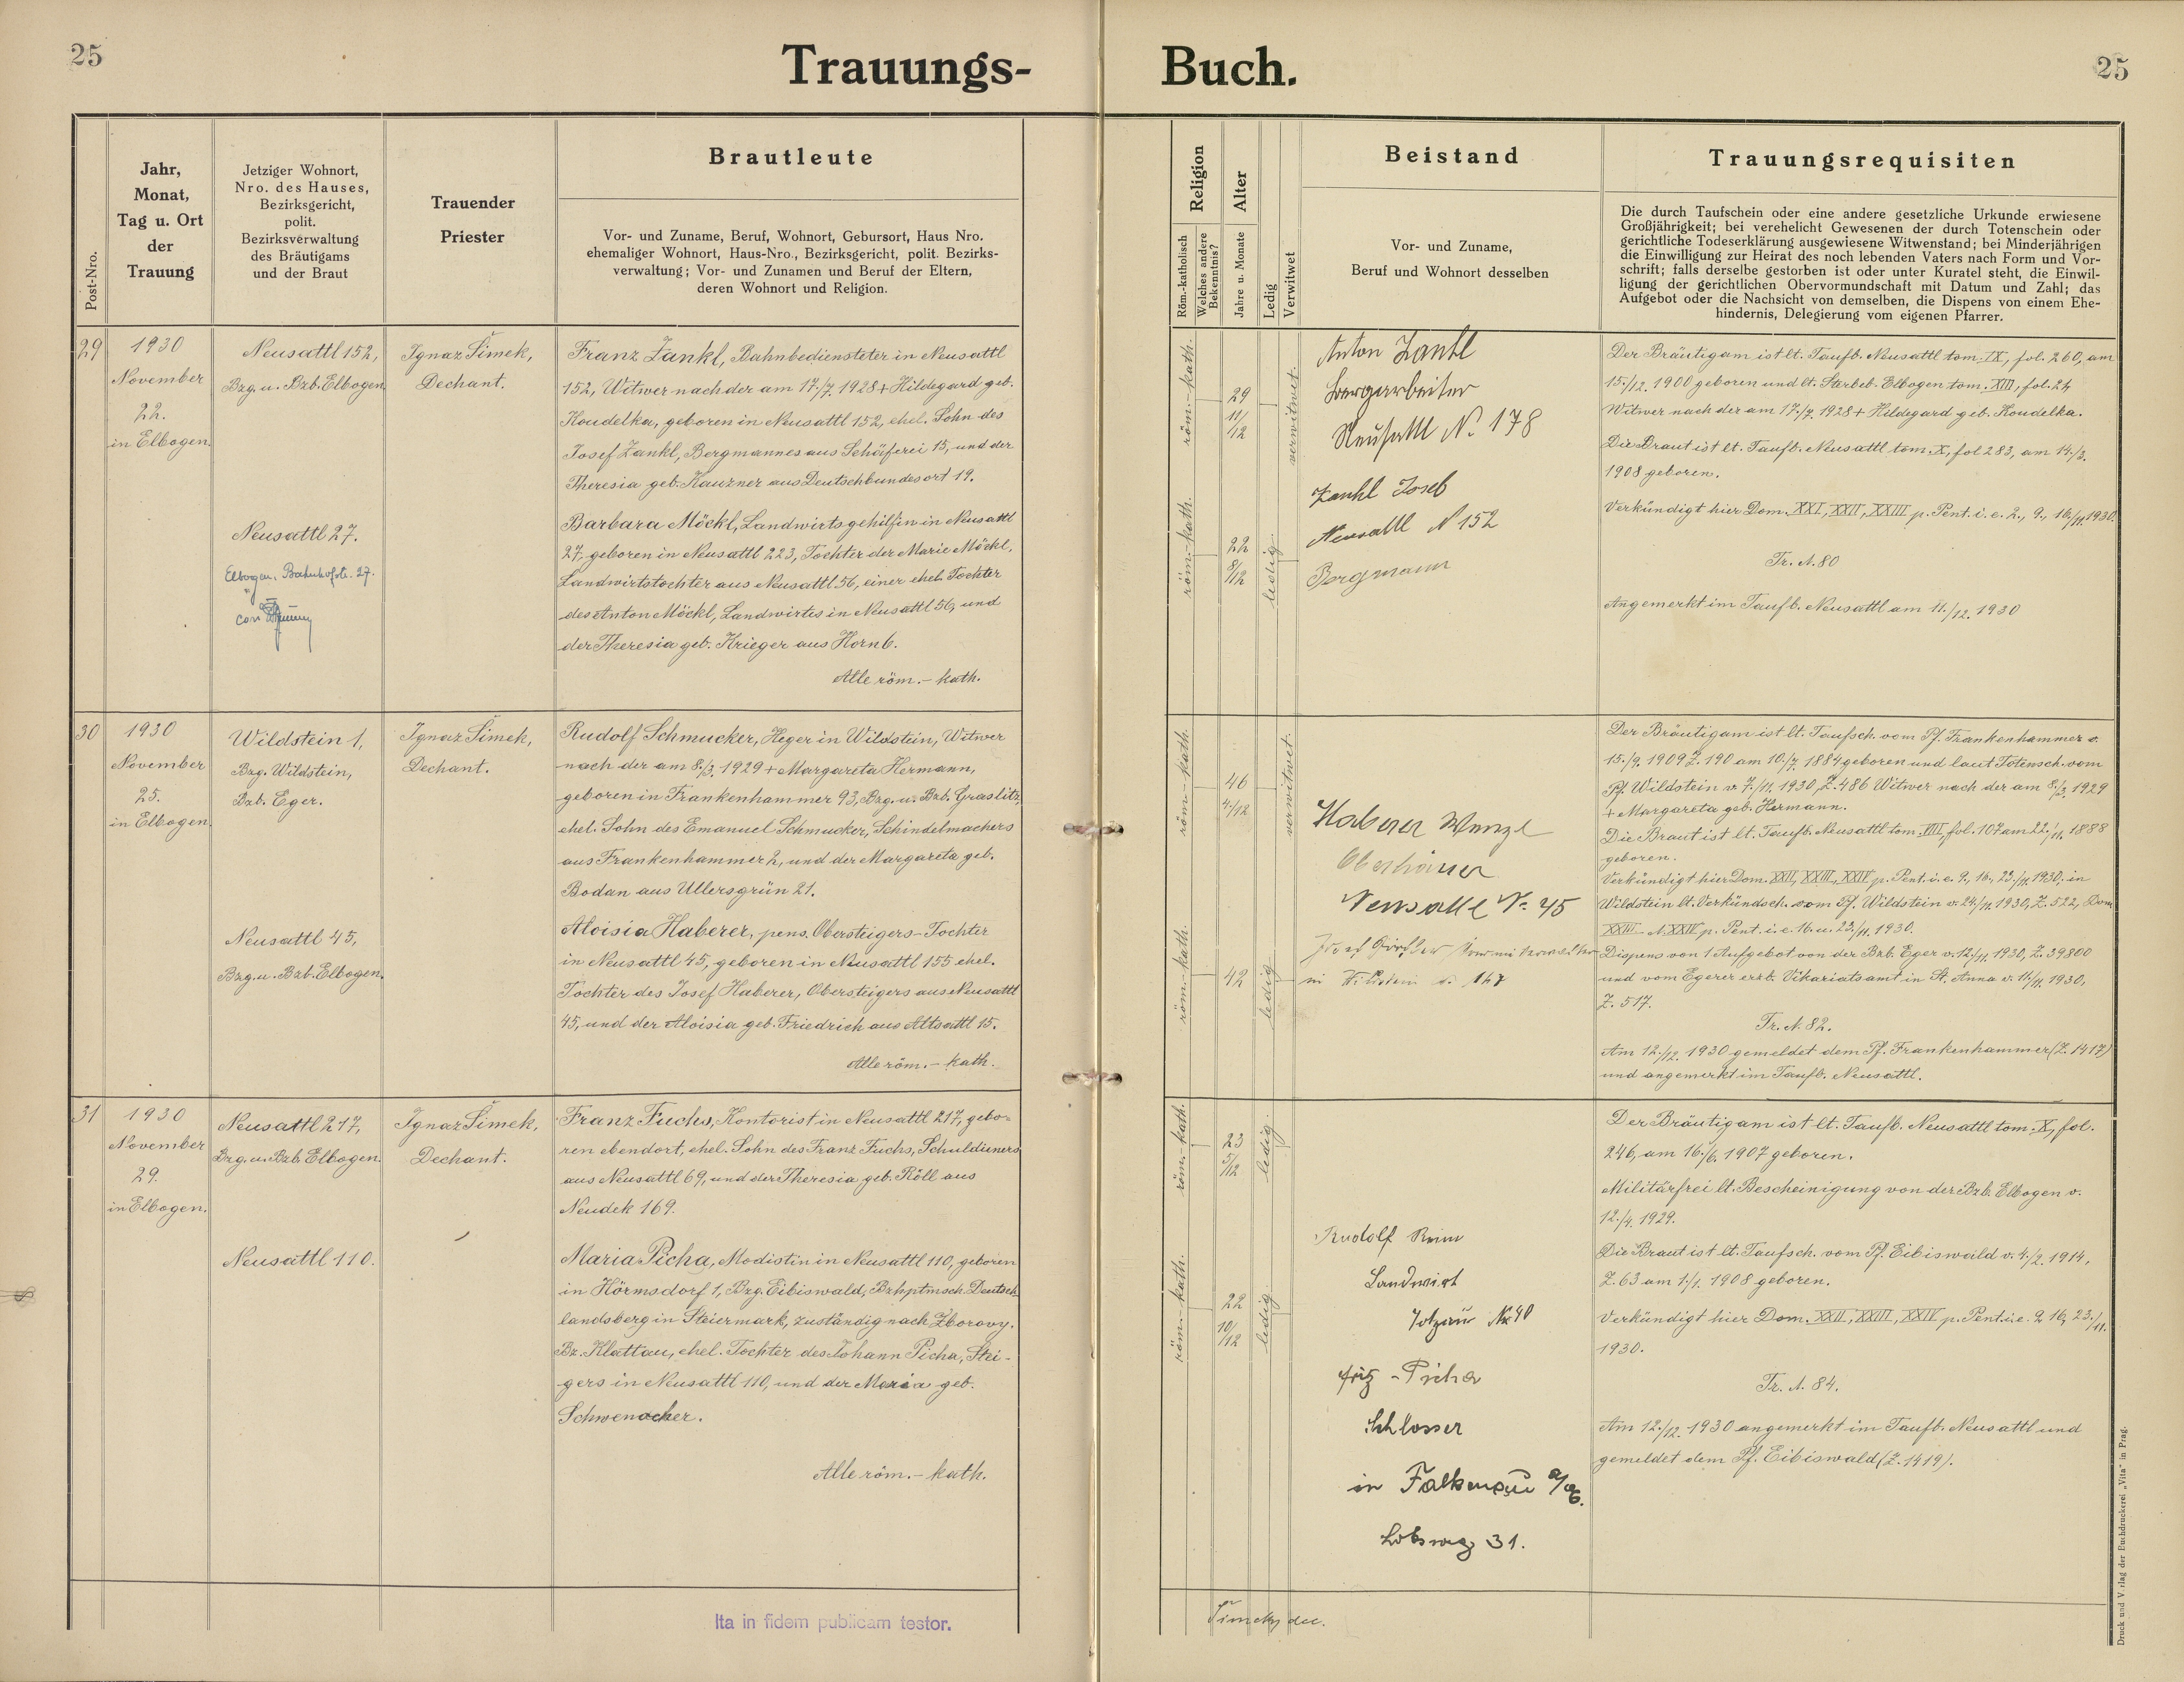 25
Trauungs-
Buch.
25
Post-Nro.
Jahr,
Monat,
Tag u. Ort
der
Trauung
Jetziger Wohnort,
Nro. des Hauses,
Bezirksgericht,
polit.
Bezirksverwaltung
des Bräutigams
und der Braut
Trauender
Priester
Brautleute
Vor- und Zuname, Beruf, Wohnort, Gebursort, Haus Nro.
ehemaliger Wohnort, Haus-Nro., Bezirksgericht, polit. Bezirks-
verwaltung; Vor- und Zunamen und Beruf der Eltern,
deren Wohnort und Religion.
Religion
Röm.-katholisch
Welches andere
Bekenntnis?
Alter
Jahre u. Monate
Ledig
Verwitwet
Beistand
Vor- und Zuname,
Beruf und Wohnort desselben
Trauungsrequisiten
Die durch Taufschein oder eine andere gesetzliche Urkunde erwiesene
Großjährigkeit; bei verehelicht Gewesenen der durch Totenschein oder
gerichtliche Todeserklärung ausgewiesene Witwenstand; bei Minderjährigen
die Einwilligung zur Heirat des noch lebenden Vaters nach Form und Vor-
schrift; falls derselbe gestorben ist oder unter Kuratel steht, die Einwil-
ligung der gerichtlichen Obervormundschaft mit Datum und Zahl; das
Aufgebot oder die Nachsicht von demselben, die Dispens von einem Ehe-
hindernis, Delegierung vom eigenen Pfarrer.
29
1930
November
22.
in Elbogen.
Neusattl 152,
Bzg. u. Bzb. Elbogen.
Neusattl 27.
Elbogen, Bahnhofstr. 27.
Ignaz Šimek,
Dechant.
Franz Zankl, Bahnbediensteter in Neusattl
152, Witwer nach der am 17./7. 1928 + Hildegard geb.
Koudelka, geboren in Neusattl 152, ehel. Sohn des
Josef Zankl, Bergmannes aus Schäferei 15, und der
Theresia geb. Kauzner aus Deutschbundesort 19.
Barbara Möckl, Landwirtsgehilfin in Neusattl
27, geboren in Neusattl 223, Tochter der Marie Möckl,
Landwirtstochter aus Neusattl 56, einer ehel. Tochter
des Anton Möckl, Landwirtes in Neusattl 56, und
der Theresia geb. Krieger aus Horn 6.
Alle röm.-kath.
röm.-kath.
29
11/12
verwitwet.
röm.-kath.
22
8/12
ledig.
Anton Zankl
Bergarbeiter
Neusattl N. 178
Zankl Josef
Neusattl N 152
Bergmann
Der Bräutigam ist lt. Taufb. Neusattl tom. IX, fol. 260, am
15./12. 1900 geboren und lt. Sterbeb. Elbogen tom. XIII, fol. 24
Witwer nach der am 17./7. 1928 + Hildegard geb. Koudelka.
Die Braut ist lt. Taufb. Neusattl tom. X, fol 283, am 14./3.
1908 geboren.
Verkündigt hier Dom. XXI, XXII, XXIII p. Pent. i. e. 2., 9., 16./11. 1930.
Tr. A. 80
Angemerkt im Taufb. Neusattl am 11./12. 1930
30
1930
November
25.
in Elbogen.
Wildstein 1,
Bzg. Wildstein,
Bzb. Eger.
Neusattl 45,
Bzg. u. Bzb. Elbogen.
Ignaz Šimek,
Dechant.
Rudolf Schmucker, Heger in Wildstein, Witwer
nach der am 8./3. 1929 + Margareta Hermann,
geboren in Frankenhammer 93, Bzg. u. Bzb. Graslitz,
ehel. Sohn des Emanuel Schmucker, Schindelmachers
aus Frankenhammer 2, und der Margareta geb.
Bodan aus Ullersgrün 21.
Aloisia Haberer, pens. Obersteigers-Tochter
in Neusattl 45, geboren in Neusattl 155 ehel.
Tochter des Josef Haberer, Obersteigers aus Neusattl
45, und der Aloisia geb. Friedrich aus Altsattl 15.
Alle röm.-kath.
röm-kath.
46
4/12
verwitwet.
röm.-kath.
42
ledig
Haberer Wenzl
Oberhäuer
Neusattl N. 45
Josef
in Wildstein N. 147
Der Bräutigam ist lt. Taufsch. vom Pf. Frankenhammer v.
15./9. 1909 Z. 190 am 10./7. 1884 geboren und laut Totensch. vom
Pf. Wildstein v. 7./11. 1930, Z. 486 Witwer nach der am 8./3. 1929
+ Margareta geb. Hermann.
Die Braut ist lt. Taufb. Neusattl tom. VIII, fol. 107 am 22./11. 1888
geboren.
Verkündigt hier Dom. XXII, XXIII, XXIV p. Pent. i. e. 9., 16., 23./11. 1930; in
Wildstein lt. Verkündsch. vom Pf. Wildstein v. 24./11. 1930, Z. 522, Dom
XXIII u. XXIV p. Pent. i. e. 16. u. 23./11. 1930.
Dispens von 1 Aufgebot von der Bzb. Eger v. 12./11. 1930, Z. 39800
und vom Egerer erzb. Vikariatsamt in St. Anna v. 14/11. 1930,
Z. 517.
Tr. A. 82.
Am 12./12. 1930 gemeldet dem Pf. Frankenhammer (Z. 1417)
und angemerkt im Taufb. Neusattl.
31
1930
November
29.
in Elbogen.
Neusattl 217,
Bzg. u. Bzb. Elbogen.
Neusattl 110.
Ignaz Šimek,
Dechant.
Franz Fuchs, Kontorist in Neusattl 217, gebo-
ren ebendort, ehel. Sohn des Franz Fuchs, Schuldieners
aus Neusattl 69, und der Theresia geb. Röll aus
Neudek 169.
Maria Picha, Modistin in Neusattl 110, geboren
in Hörmsdorf 1, Bzg. Eibiswald, Bzhptmsch. Deutsch
landsberg in Steiermark, zuständig nach Zborovy.
Bz. Klattau, ehel. Tochter des Johann Picha, Stei-
gers in Neusattl 110, und der Maria geb.
Schwenacher.
Alle röm.-kath.
röm.-kath.
23
5/12
ledig.
röm.-kath.
22
10/12
ledig
Rudolf Reim
Landwirt
N 40
Fritz Picha
Schlosser
in Falkenau a/E.
Lobsweg 31.
Der Bräutigam ist lt. Taufb. Neusattl tom. X, fol.
246, am 16./6. 1907 geboren.
Militärfrei lt. Bescheinigung von der Bzb. Elbogen v.
12./4. 1929.
Die Braut ist lt. Taufsch. vom Pf. Eibiswald v. 4./2. 1914,
Z. 63 am 1./1. 1908 geboren.
Verkündigt hier Dom. XXII, XXIII, XXIV p. Pent. i. e. 9. 16, 23./11.
1930.
Tr. A. 84.
Am 12./12. 1930 angemerkt im Taufb. Neusattl und
gemeldet dem Pf. Eibiswald (Z. 1419).
Ita in fidem publicam testor.
Šimek, dec.
Druck und Verlag der Buchdruckerei „Vita" in Prag.